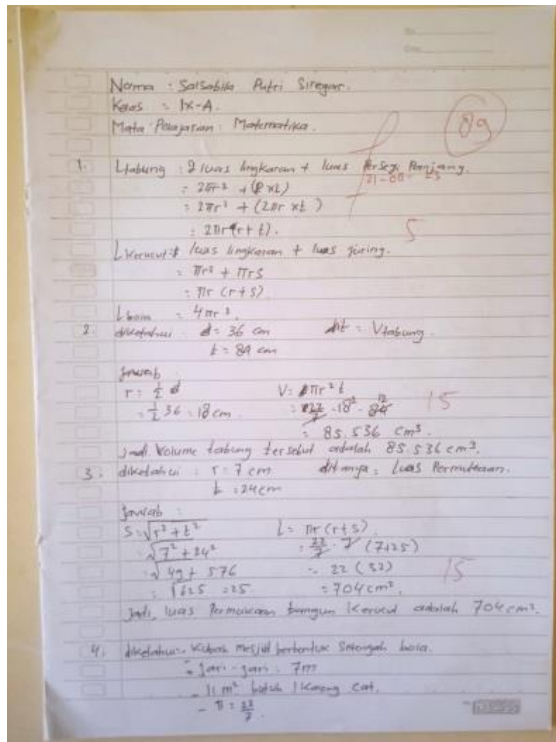 No:
Date:
Nama : Salsabila Putri Siregar.
Kelas : IX-A
Mata Pelajaran : Matematika.
89
1. Ltabung : 2 luas lingkaran + luas Persegi Panjang.
= 2πr² + (P x L)
= 2πr² + (2πr x t)
= 2πr (r + t).
5
L kerucut : luas lingkaran + luas juring.
= πr² + πrs
= πr (r+s)
L bola = 4πr².
2. diketahui : d = 36 cm dit = Vtabung.
t = 84 cm
Jawab
r = 1/2 d V = πr² t
= 1/2 36 = 18 cm = 22/7 · 18² · 84 12
= 85.536 cm³.
15
Jadi Volume tabung tersebut adalah 85.536 cm³.
3. diketahui : r = 7 cm ditanya : Luas Permukaan.
t = 24 cm
Jawab :
S = √r² + t² L = πr (r+s)
= √7² + 24² = 22/7 · 7 (7+25)
= √49 + 576 = 22 (32)
= √625 = 25. = 704 cm².
15
Jadi, luas Permukaan bangun kerucut adalah 704 cm².
4. diketahui : - Kubah mesjid berbentuk Setengah bola.
- Jari-jari : 7m
- 11 m² butuh 1 karong Cat.
- π = 22/7.